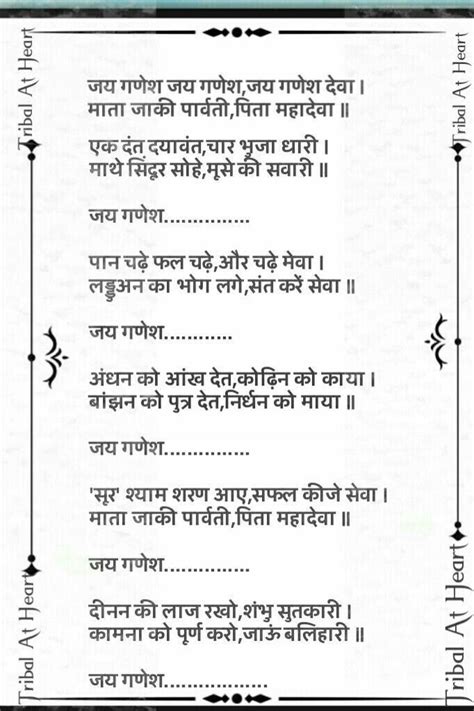 Tribal At Heart
Tribal At Heart
जय गणेश जय गणेश,जय गणेश देवा ।
माता जाकी पार्वती,पिता महादेवा ॥
एक दंत दयावंत,चार भुजा धारी ।
माथे सिंदूर सोहे,मूसे की सवारी ॥
जय गणेश...............
पान चढ़े फल चढ़े,और चढ़े मेवा ।
लड्डुअन का भोग लगे,संत करें सेवा ॥
जय गणेश............
अंधन को आंख देत,कोढ़िन को काया ।
बांझन को पुत्र देत,निर्धन को माया ॥
जय गणेश...............
'सूर' श्याम शरण आए,सफल कीजे सेवा ।
माता जाकी पार्वती,पिता महादेवा ॥
जय गणेश...............
दीनन की लाज रखो,शंभु सुतकारी ।
कामना को पूर्ण करो,जाऊं बलिहारी ॥
जय गणेश..................
Tribal At Heart
Tribal At Heart